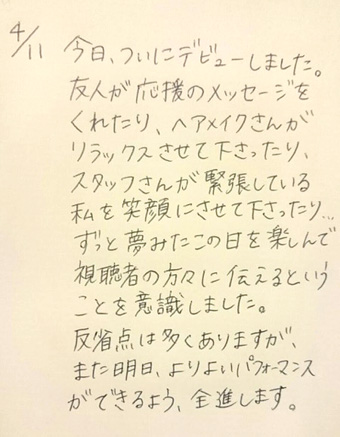 4/11
今日、ついにデビューしました。
友人が応援のメッセージを
くれたり、ヘアメイクさんが
リラックスさせて下さったり、
スタッフさんが緊張している
私を笑顔にさせて下さったり…
ずっと夢みたこの日を楽しんで
視聴者の方々に伝えるという
ことを意識しました。
反省点は多くありますが、
また明日、よりよいパフォーマンス
ができるよう、全進します。